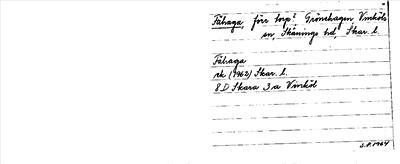 Fåhaga, förr torp? Grönehagen, Vinköls
sn, Skånings hd, Skar. l.
Fåhaga
rk (1962) Skar. l.
8D Skara 3a Vinköl
S.F. 1964